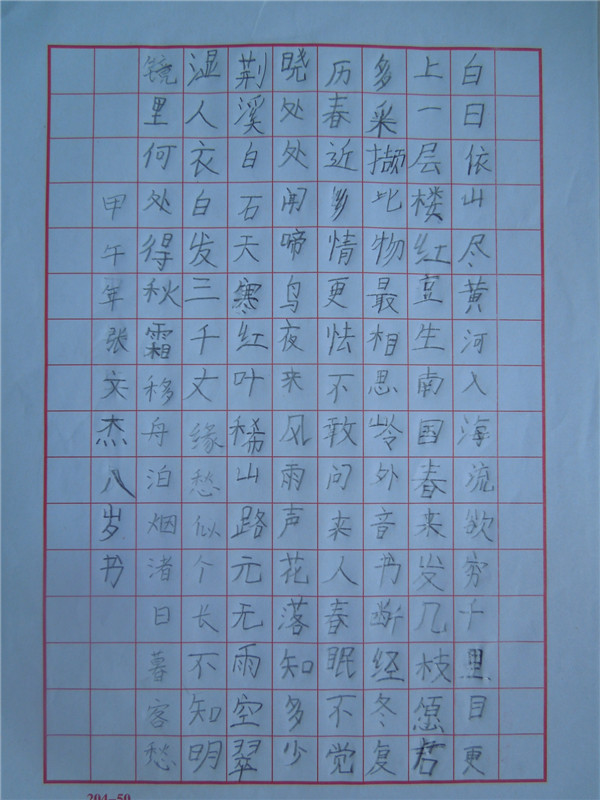 白日依山尽黄河入海流欲穷千里目更
上一层楼红豆生南国春来发几枝愿君
多采撷此物最相思岭外音书断经冬复
历春近乡情更怯不敢问来人春眠不觉
晓处处闻啼鸟夜来风雨声花落知多少
荆溪白石天寒红叶稀山路元无雨空翠
湿人衣白发三千丈缘愁似个长不知明
镜里何处得秋霜移舟泊烟渚日暮客愁
甲午年张文杰八岁书
204-50